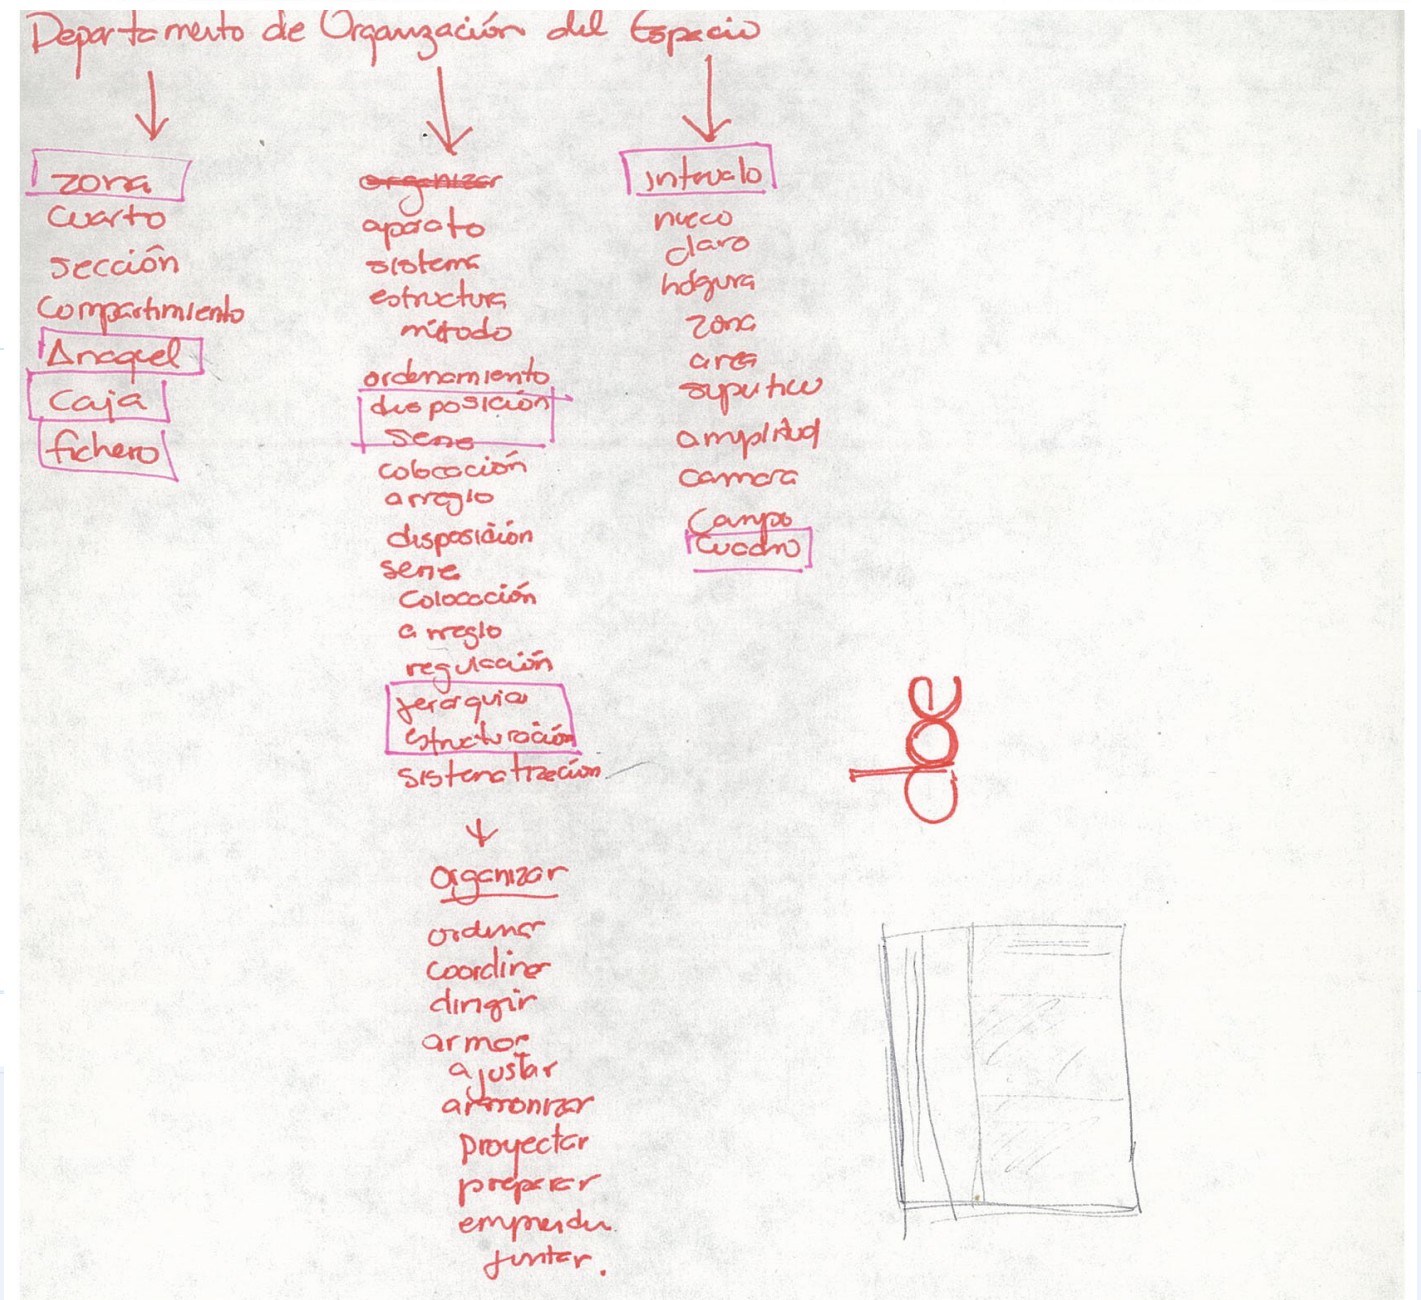 Departamento de Organización del Espacio
zona
cuarto
sección
compartimiento
Anaquel
Caja
fichero
organizar
aparato
sistema
estructura
método
ordenamiento
disposición
serie
colocación
arreglo
disposición
serie
colocación
arreglo
regulación
jerarquia
estructuración
sistematización
organizar
ordenar
coordinar
dirigir
armar
ajustar
armonizar
proyectar
preparar
emprender
juntar.
intervalo
claro
holgura
zona
area
amplitud
camara
Campo
Cuadro
doe